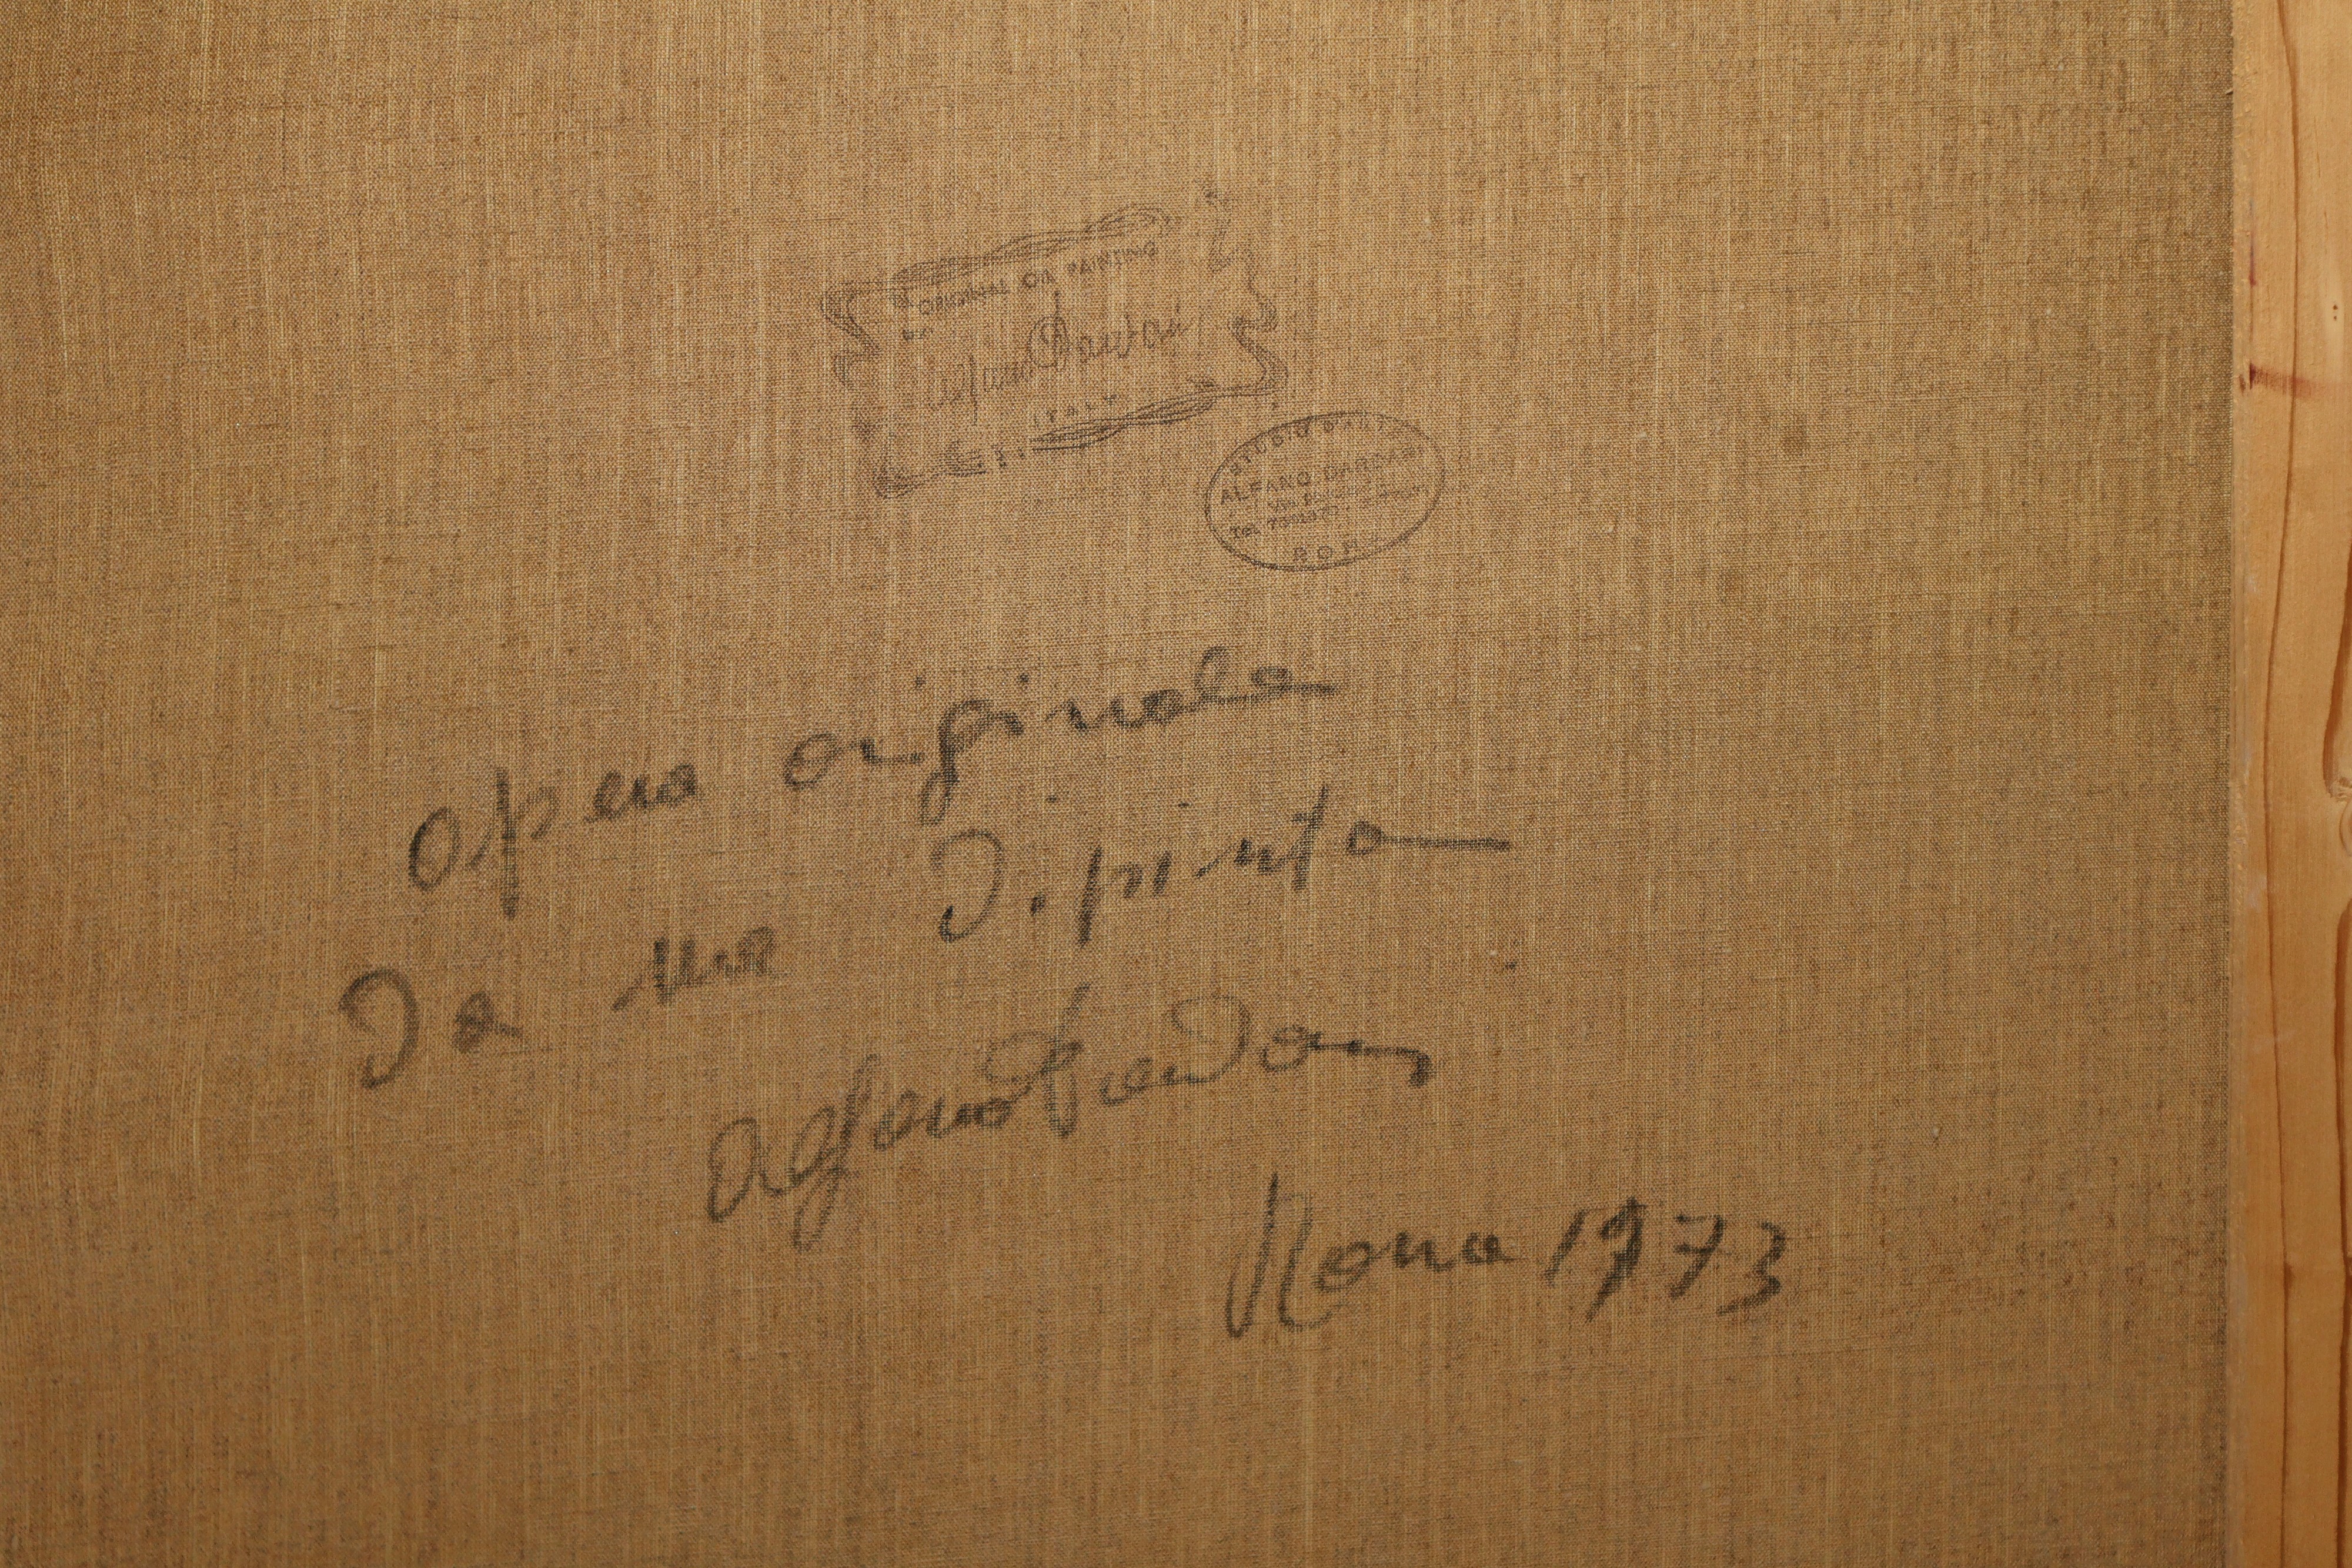 ORIGINAL OIL PAINTING
ITALY
STUDIO D'ARTE
ALFANO DARDARI
Tel.
ROMA
opera originale
Da me Dipinta
Alfano Dardari
Roma 1973